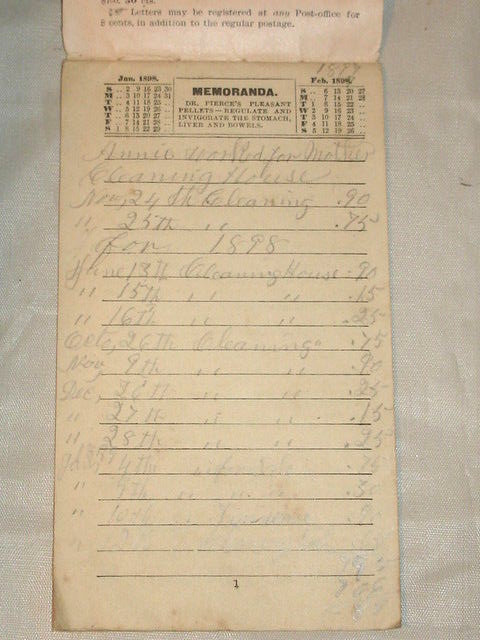 Letters may be registered at any Post-office for
8 cents, in addition to the regular postage.
1897
Jan. 1898.
S .. 2 9 16 23 30
M .. 3 10 17 24 31
T .. 4 11 18 25 ..
W .. 5 12 19 26 ..
T .. 6 13 20 27 ..
F .. 7 14 21 28 ..
S 1 8 15 22 29 ..
MEMORANDA.
DR. PIERCE'S PLEASANT
PELLETS—REGULATE AND
INVIGORATE THE STOMACH,
LIVER AND BOWELS.
Feb. 1898.
S .. 6 13 20 27
M .. 7 14 21 28
T 1 8 15 22 ..
W 2 9 16 23 ..
T 3 10 17 24 ..
F 4 11 18 25 ..
S 5 12 19 26 ..
Annie worked for Mother
Cleaning House
Nov, 24th Cleaning .90
" 25th " .75
for 1898
June 13th Cleaning House .90
" 15th " " .15
" 16th " " .25
Oct, 26th Cleaning " .75
Nov 9th " " .90
Dec, 26th " " .25
" 27th " " .15
" 28th " "
4th
" 9th " "
" 10th
1